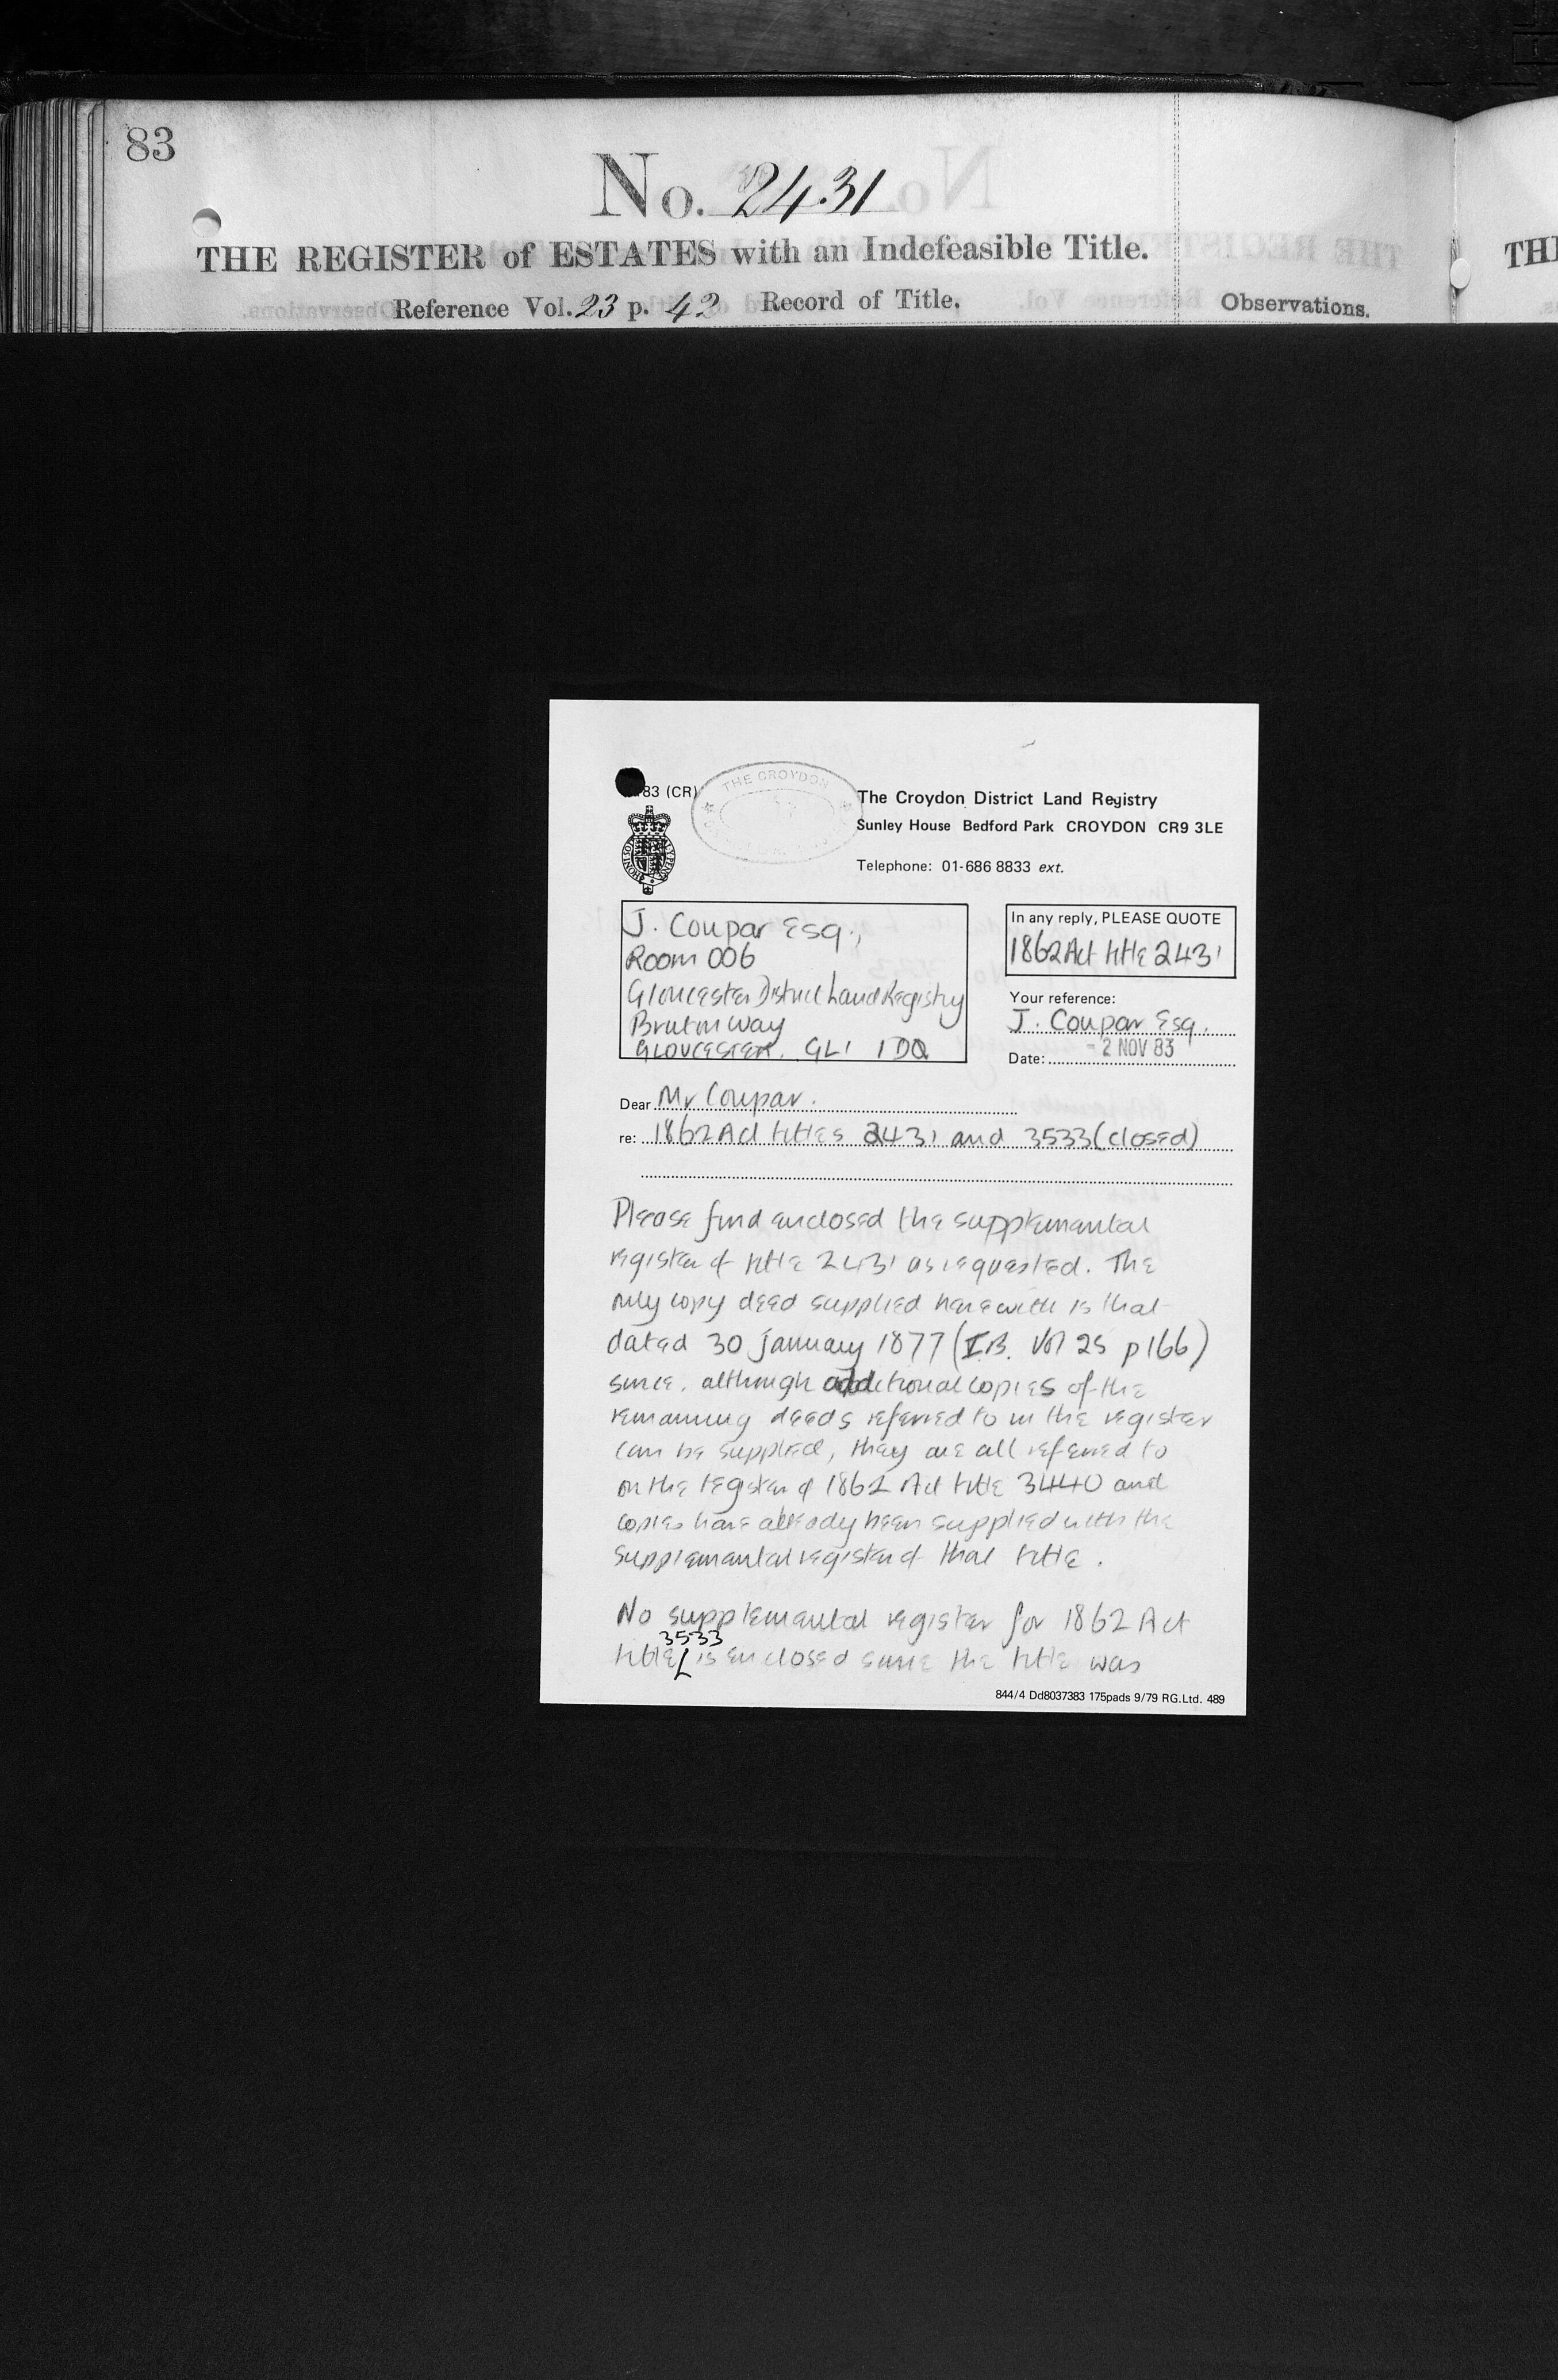 83
No. 2431
THE REGISTER of ESTATES with an Indefeasible Title.
Reference Vol. 23 p. 42 Record of Title.
Observations.
TH
83 (CR)
THE CROYDON
The Croydon District Land Registry
Sunley House Bedford Park CROYDON CR9 3LE
Telephone: 01-686 8833 ext.
J. Coupar Esq.,
Room 006
Gloucester District Land Registry
Bruton Way
GLOUCESTER. GL1 1DQ
In any reply, PLEASE QUOTE
1862 Act title 2431
Your reference:
J. Coupar Esq.
Date: - 2 NOV 83
Dear Mr Coupar.
re: 1862 Act titles 2431 and 3533 (closed)
Please find enclosed the supplemental
register of title 2431 as requested. The
only copy deed supplied herewith is that
dated 30 January 1877 (I.B. Vol 25 p166)
since, although additional copies of the
remaining deeds referred to in the register
can be supplied, they are all referred to
on the register of 1862 Act title 3440 and
copies have already been supplied with the
supplemental register of that title.
No supplemental register for 1862 Act
title 3533 is enclosed since the title was
844/4 Dd8037383 175pads 9/79 RG.Ltd. 489